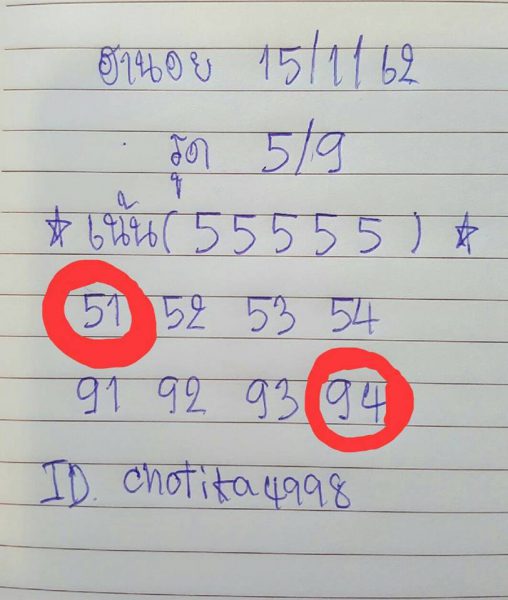 ฮานอย 15/11/62
รูด 5/9
☆ เน้น ( 5 5 5 5 5 ) ☆
51 52 53 54
91 92 93 94
ID. chotika4998